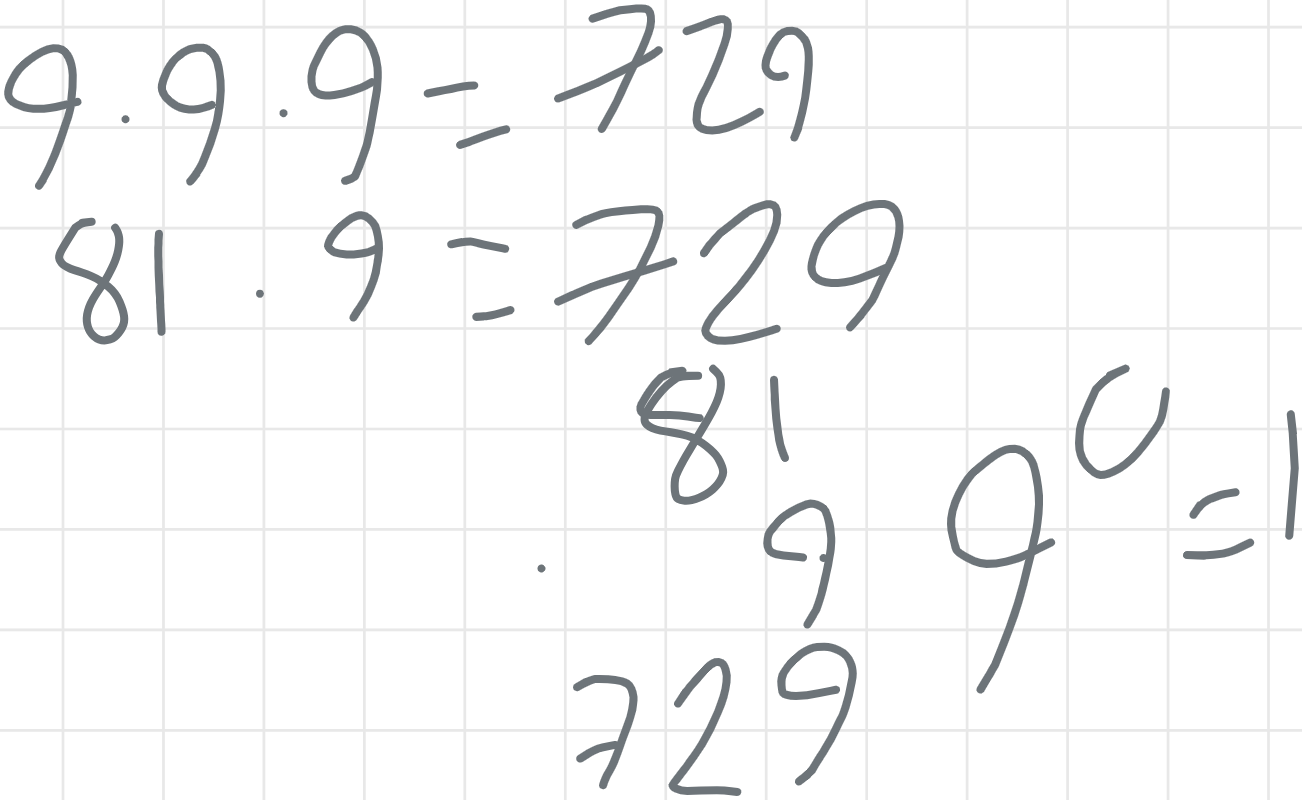 9 · 9 · 9 = 729
81 · 9 = 729
81
· 9
729
9⁰ = 1